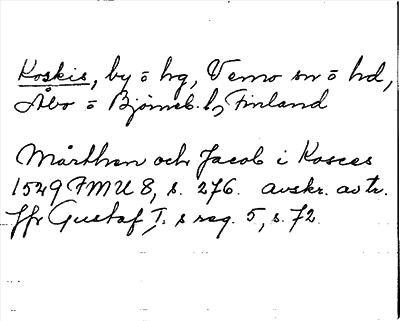 Koskis, by o hg, Vemo sn o hd,
Åbo o Björneb. l, Finland
Mårthen och Jacob i Kosces
1549 FMU 8, s. 276. avskr. av tr.
jfr Gustaf I:s reg. 5, s. 72.